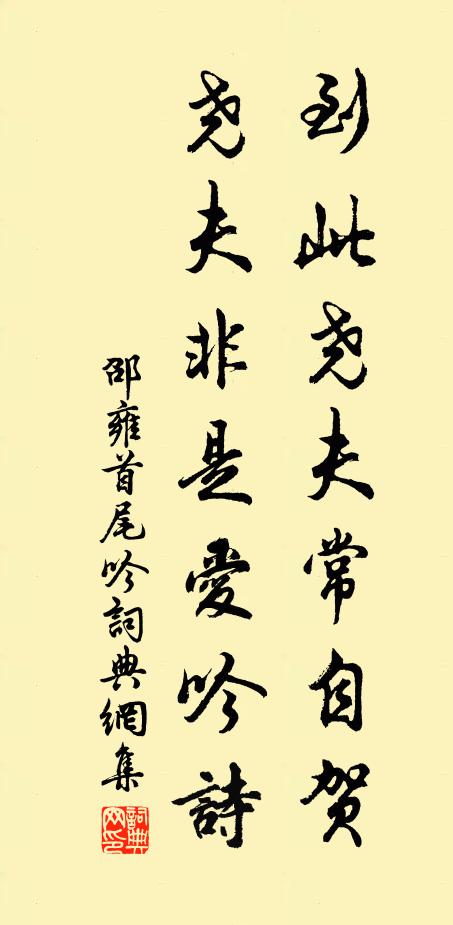 到此尧夫常自賀
尧夫非是愛吟詩
邵雍首尾吟詞典網集
詞典
网印